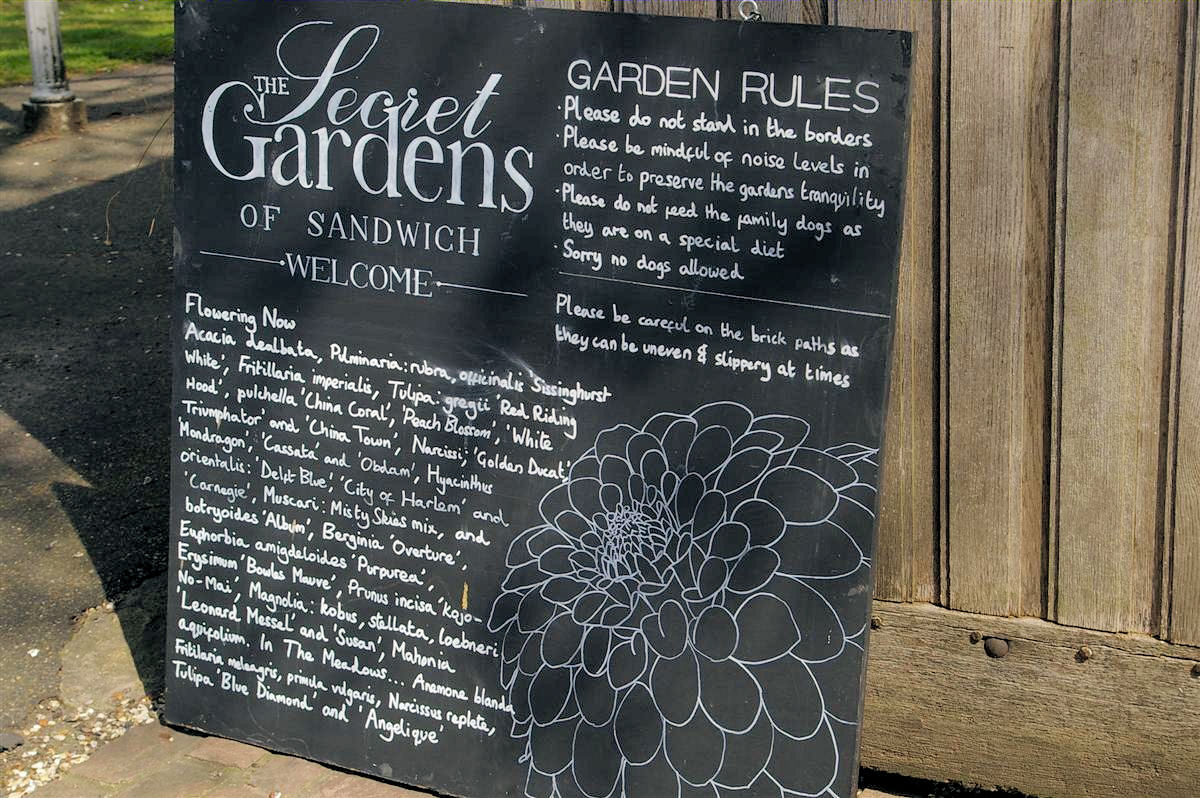 THE Secret
Gardens
OF SANDWICH
WELCOME
Flowering Now
Acacia dealbata, Pulminaria: rubra, officinalis Sissinghurst
White', Fritillaria imperialis, Tulipa: gregii 'Red Riding
Hood', pulchella 'China Coral', 'Peach Blossom', 'White
Triumphator' and 'China Town', Narcissi: 'Golden Ducat',
'Mondragon', 'Cassata' and 'Obdam', Hyacinthus
orientalis: 'Delft Blue', 'City of Harlem' and
'Carnegie', Muscari: Misty Skies mix, and
botryoides 'Album', Berginia 'Overture',
Euphorbia amigdeloides 'Purpurea',
Erysimum 'Bowles Mauve', Prunus incisa 'kojo-
No-Mai', Magnolia: kobus, stellata, loebneri
'Leonard Messel' and 'Susan', Mahonia
aquifolium. In The Meadows... Anemone blanda
Fritilaria meleagris, primula vulgaris, Narcissus replete,
Tulipa 'Blue Diamond' and 'Angelique'
GARDEN RULES
·Please do not stand in the borders
·Please be mindful of noise levels in
order to preserve the gardens tranquility
·Please do not feed the family dogs as
they are on a special diet
·Sorry no dogs allowed
Please be careful on the brick paths as
they can be uneven & slippery at times